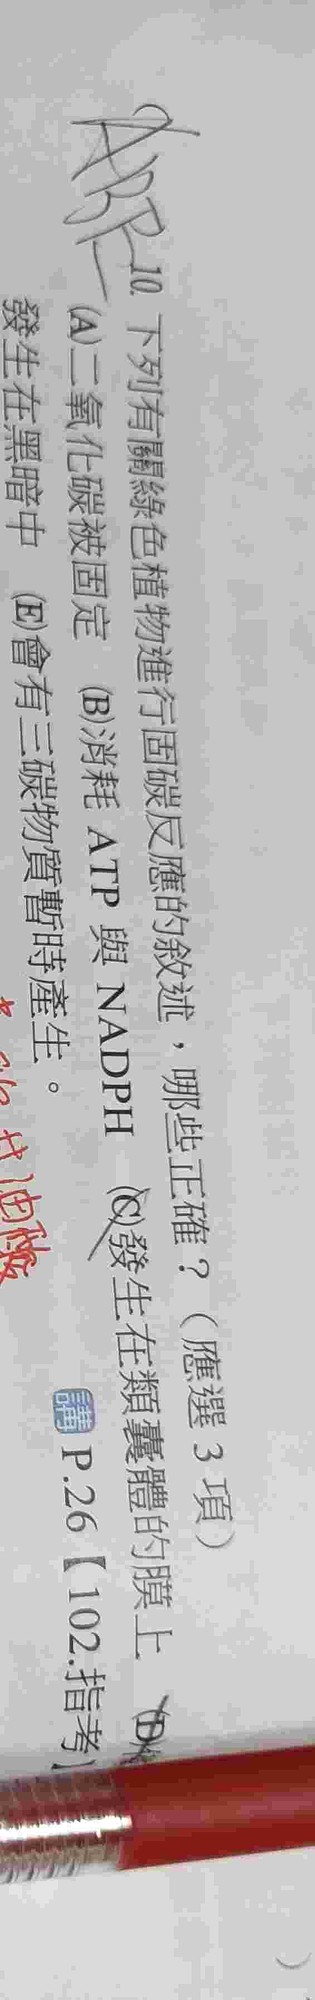 ABE
10. 下列有關綠色植物進行固碳反應的敘述，哪些正確？（應選 3 項）
(A)二氧化碳被固定 (B)消耗 ATP 與 NADPH (C)發生在類囊體的膜上 (D)
發生在黑暗中 (E)會有三碳物質暫時產生。
講 P.26【102.指考】